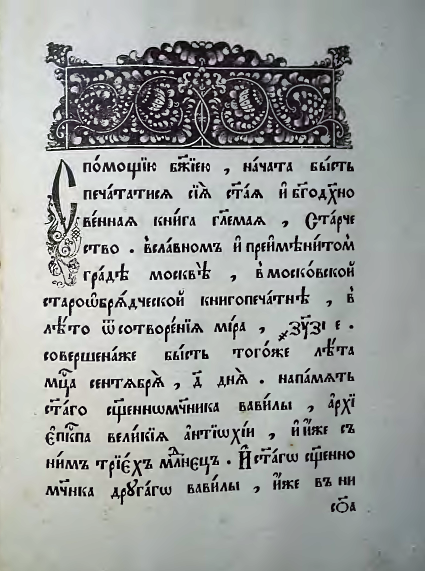 Спомощїю бж҃їею , нача́та бы́сть
печа́татися сїѧ̀ ст҃а́ѧ и҆ бг҃одх҃но
ве́нная кни́га гл҃емая , Ста́рче
ство . в̾сла́вномъ и҆ преимѣни́томъ
гра́дѣ москвѣ̀ , в̾моско́вской
староѡбрѧ́дческой книгопеча́тнѣ , в̾
лѣ́то ѿ сотворе́нїѧ мі́ра , ҂зу҃зі е .
соверше́наже бы́сть того́же лѣ́та
мц҃а сентѧбрѧ̀ , д҃ днѧ̀ . на па́мѧть
ст҃а́гѡ сщ҃енномч҃ника вави́лы , а҆рхї
є҆пⷭ҇кпа вели́кїѧ а҆нтїѡхі́и , и҆ и҆́же съ
ни́мъ трїе́хъ млⷣнецъ . И҆ ст҃а́гѡ сщ҃енно
мч҃нка друга́гѡ вави́лы , и҆́же въ ни